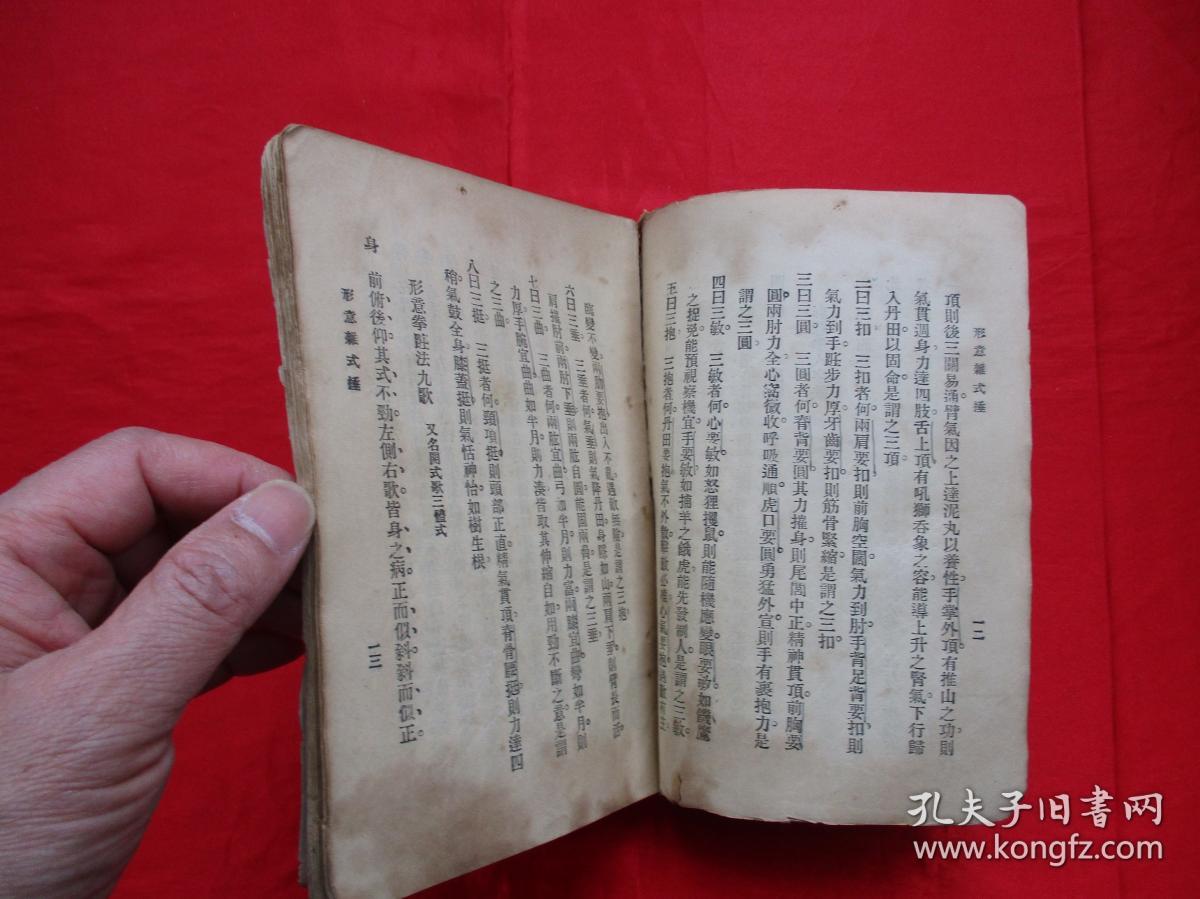 形意雜式捶
一二
項則後三關易通臂氣因之上達泥丸以養性手掌外頂有推山之功則
氣貫週身力達四肢舌上頂有吼獅吞象之容能導上升之腎氣下行歸
入丹田以固命是謂之三項
二曰三扣　三扣者何兩肩要扣則前胸空闊氣力到肘手背足背要扣則
氣力到手跓步力厚牙齒要扣則筋骨緊縮是謂之三扣
三曰三圓　三圓者何脊背要圓其力摧身則尾閭中正精神貫頂前胸要
圓兩肘力全心窩微收呼吸通順虎口要圓勇猛外宣則手有裹抱力是
謂之三圓
四曰三敏　三敏者何心要敏如怒狸攫鼠則能隨機應變眼要敏如饑鷹
之捉兔能預視察機宜手要敏如捕羊之餓虎能先發制人是謂之三敏
五曰三抱　三抱者何丹田要抱氣不外散
臨變不變兩肋要抱出入不亂遇敵無險是謂之三抱
六曰三垂　三垂者何氣垂則氣降丹田身穩如山兩肩下垂則臂長而活
肩摧肘前兩肘下垂則兩肱自圓能固兩脅是謂之三垂
七曰三曲　三曲者何兩肱宜曲弓如半月則力富兩膝宜曲彎如半月則
力厚手腕宜曲曲如半月則力湊皆取其伸縮自如用勁不斷之意是謂
之三曲
八曰三挺　三挺者何頸項挺則頭部正直精氣貫頂脊骨腰挺則力達四
稍氣鼓全身膝蓋挺則氣恬神怡如樹生根
形意拳跓法九歌　又名開式歌三體式
身　前俯後仰其式不勁左側右歌皆身之病正而似斜斜而似正
形意雜式捶
一三
孔夫子旧书网
www.kongfz.com